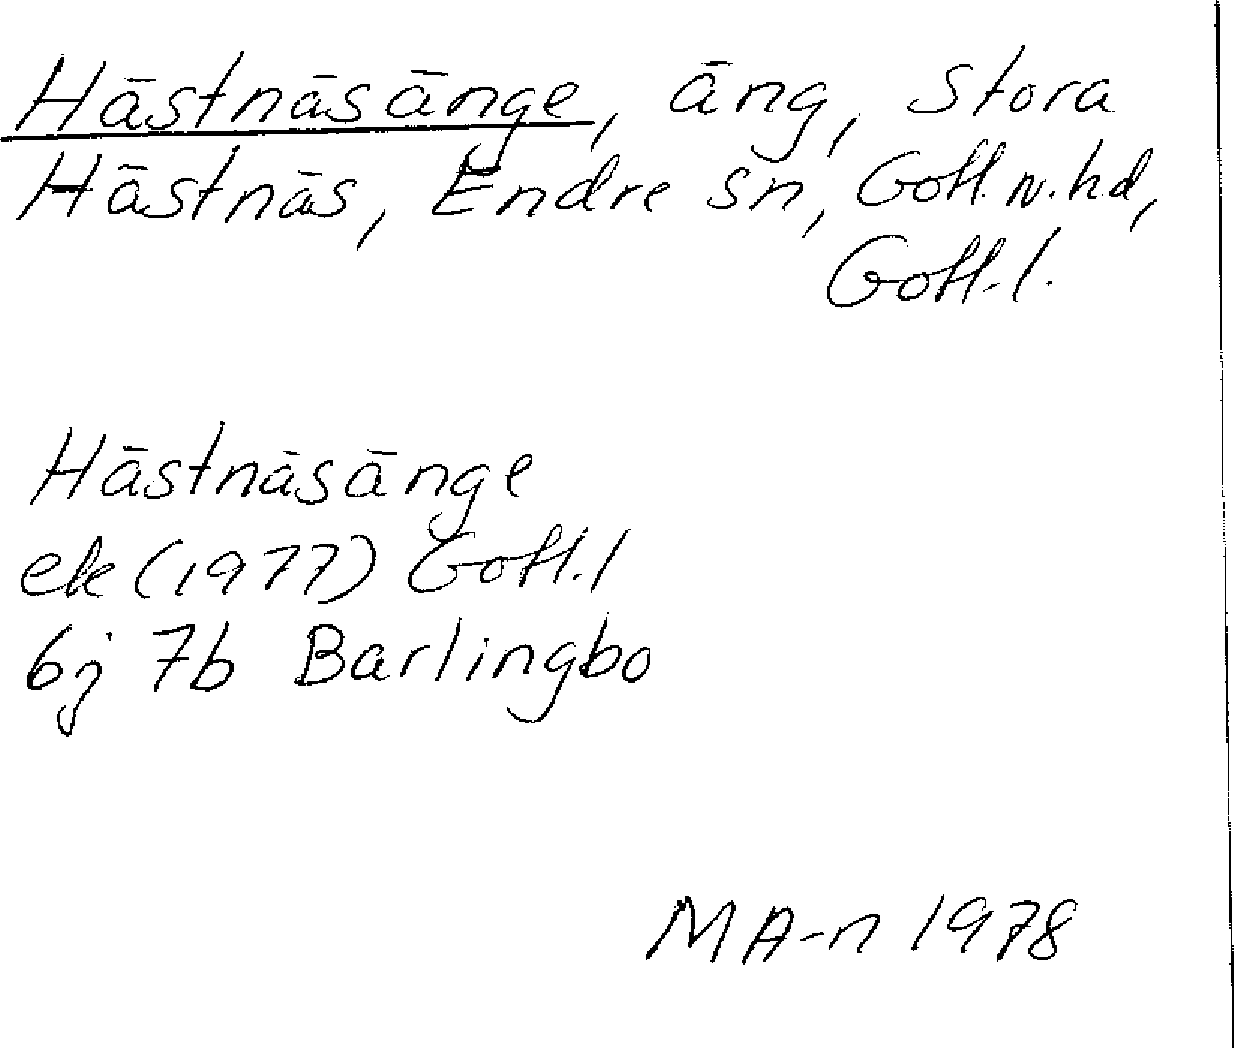 Hästnäsänge, äng, Stora
Hästnäs, Endre sn, Gotl. n. hd,
Gotl. l.
Hästnäsänge
ek (1977) Gotl. l
6j 7b Barlingbo
MA-n 1978